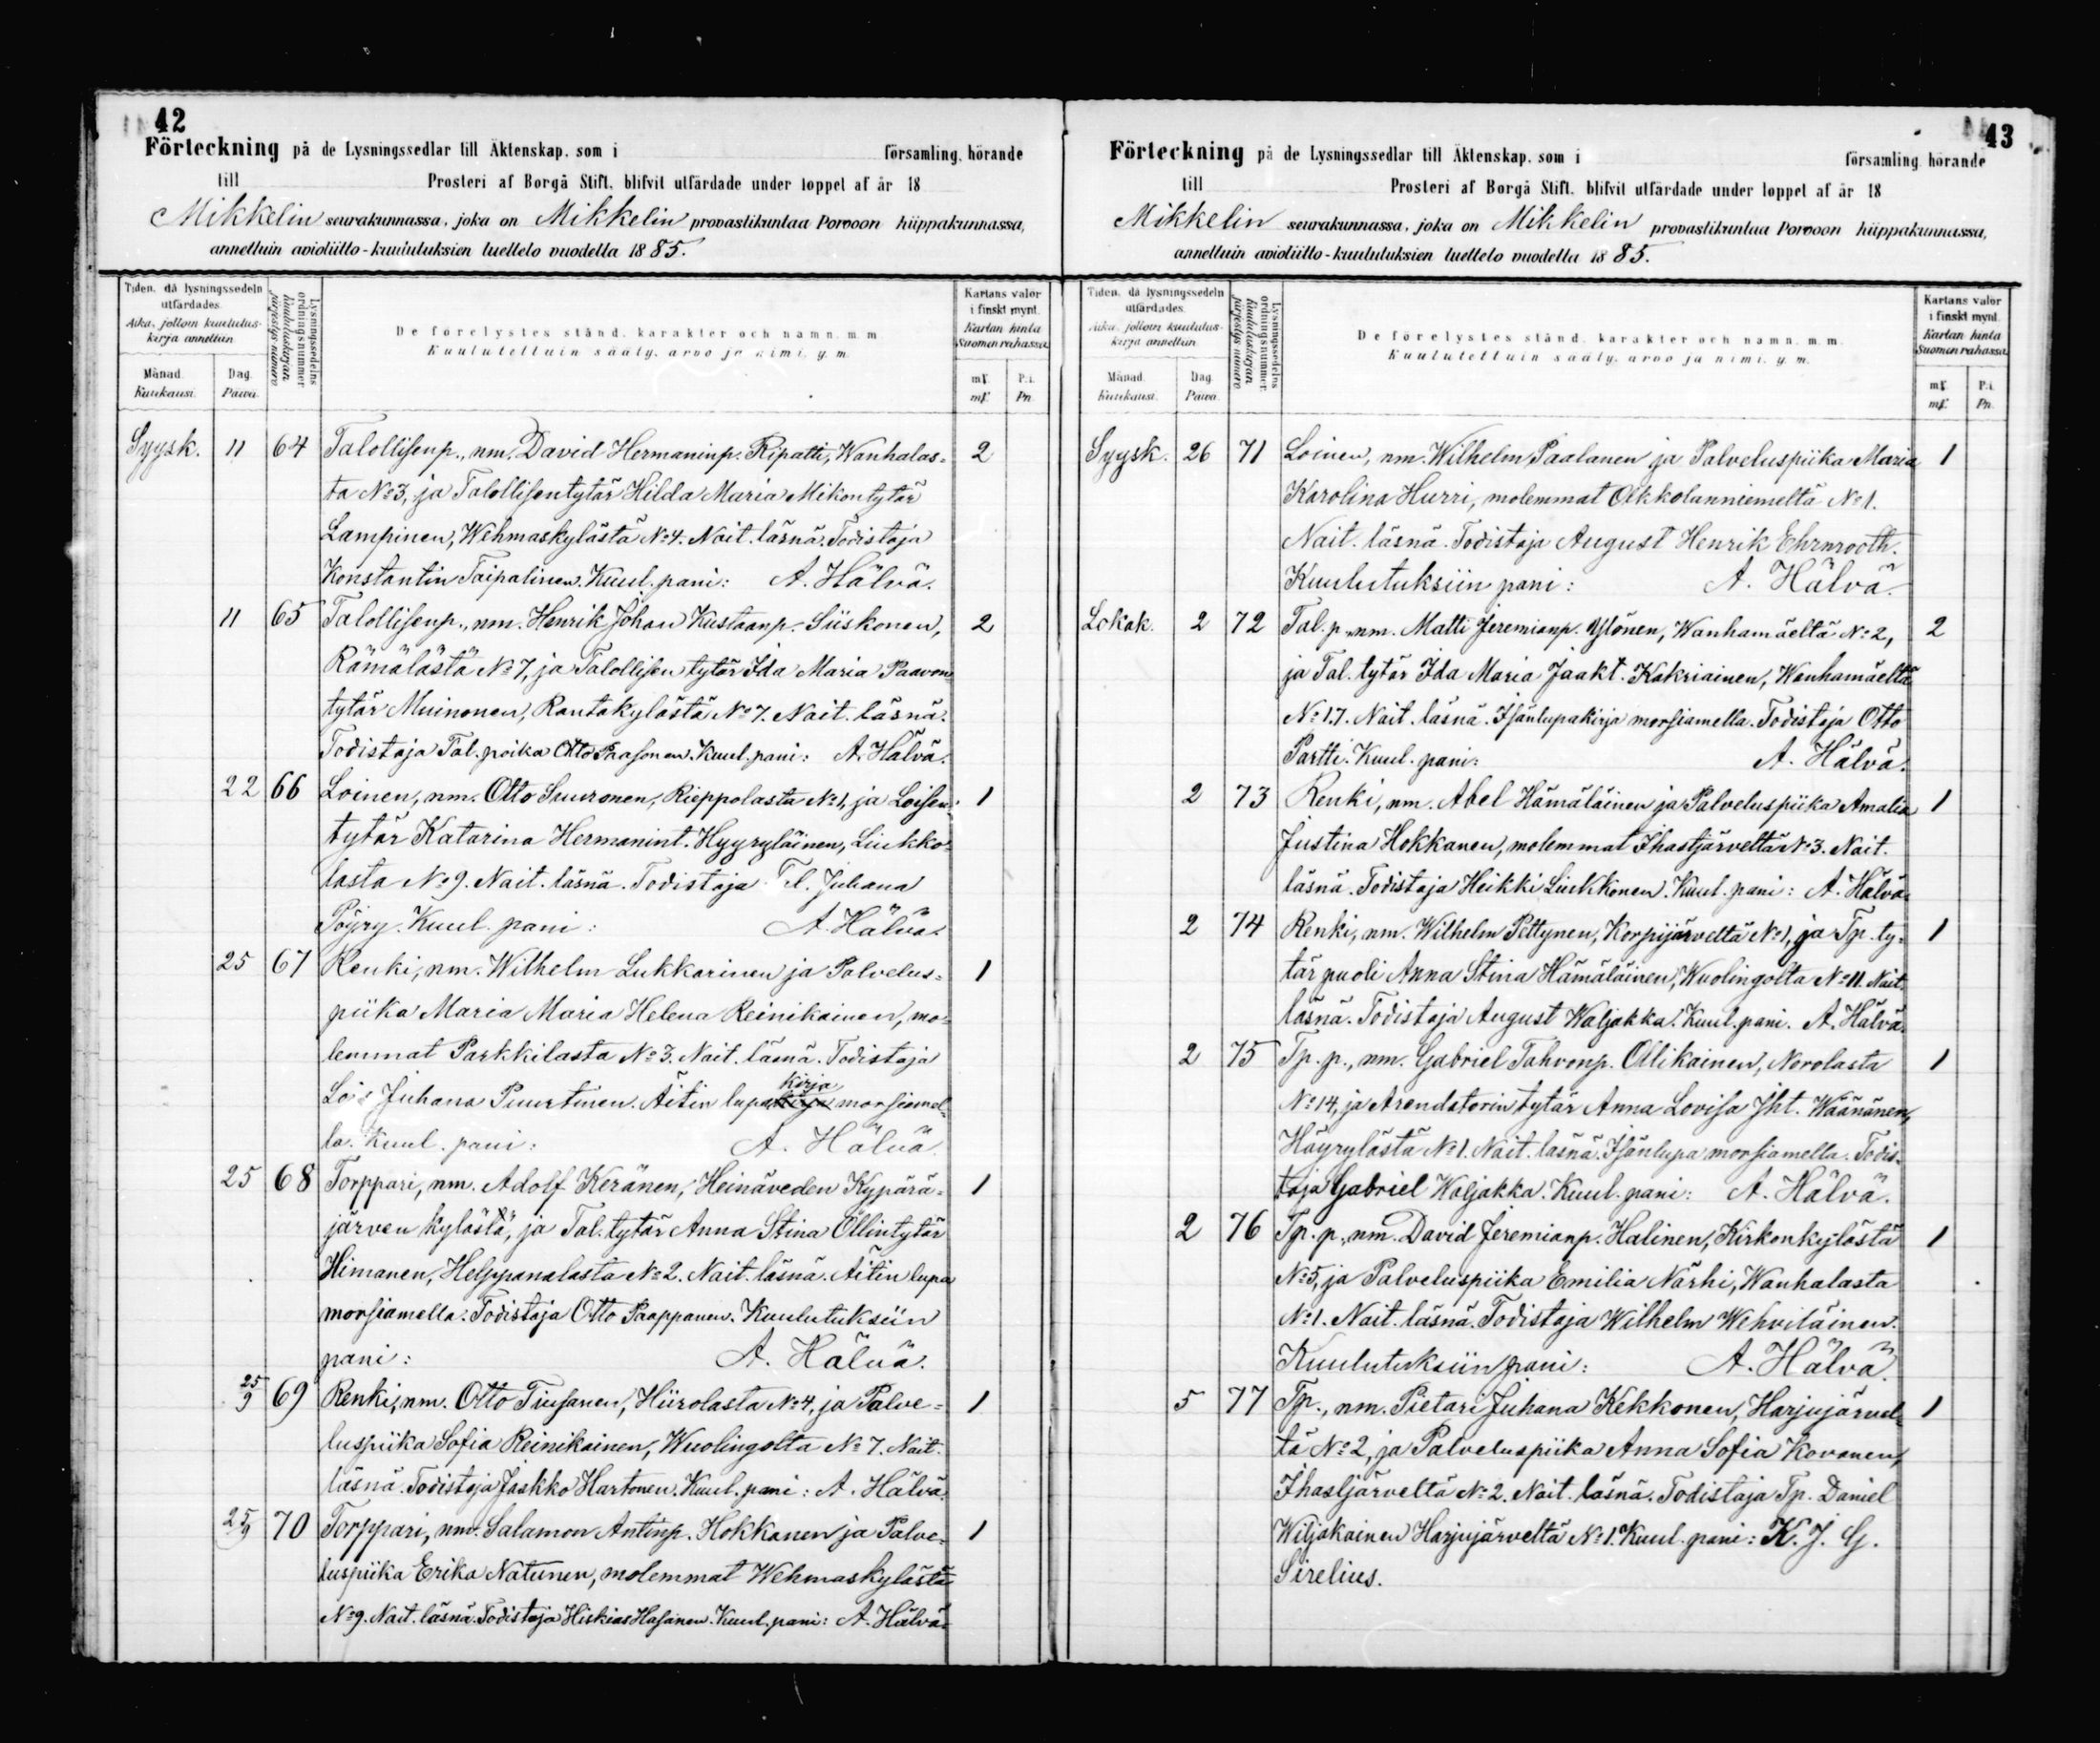 42
Förteckning på de Lysningssedlar till Äktenskap, som i församling, hörande
till Prosteri af Borgå Stift, blifvit utfärdade under loppet af år 18
Mikkelin seurakunnassa, joka on Mikkelin provastikuntaa Porvoon hiippakunnassa,
annettuin avioliitto-kuulutuksien luettelo vuodella 1885.
Tiden, då lysningssedeln utfärdades.
Aika, jolloin kuulutuskirja annettiin
Månad. Kuukausi.
Dag. Päivä.
Lysningssedelns ordningsnummer
Kuulutuskirjan järjestys numero
De förelystes stånd, karakter och namn m. m.
Kuulutettuin sääty, arvo ja nimi, y. m.
Kartans valör i finskt mynt.
Kartan hinta Suomen rahassa
mk. P:i.
mk. Pn.
Syysk. 11 64 Talollisenp., nm. David Hermaninp. Ripatti, Wanhalas= 2
ta No 3, ja Talollisentytär Hilda Maria Mikontytär
Lampinen, Wehmaskylästä No 4. Nait. läsnä. Todistaja
Konstantin Taipalinen. Kuul. pani: A. Hälvä.
11 65 Talollisenp., nm. Henrik Johan Kustaanp. Siiskonen, 2
Rämälästä No 7, ja Talollisen tytär Ida Maria Paavon
tytär Muinonen, Rantakylästä No 7. Nait. läsnä.
Todistaja Tal. poika Otto Paasonen. Kuul. pani: A. Hälvä.
22 66 Loinen, nm. Otto Suuronen, Rieppolasta No 1, ja Loisen= 1
tytär Katarina Hermanint. Hyyryläinen, Liukko=
lasta No 9. Nait. läsnä. Todistaja Tl. Juhana
Pöyry. Kuul. pani: A. Hälvä.
25 67 Renki, nm. Wilhelm Lukkarinen ja Palvelus= 1
piika Maria Maria Helena Reinikainen, mo=
lemmat Parkkilasta No 3. Nait. läsnä. Todistaja
kirja
Lo: Juhana Puurtinen. Äitin lupakirja morsiamel=
la. Kuul. pani: A. Hälvä.
25 68 Torppari, nm. Adolf Keränen, Heinäveden Kypärä= 1
järven kylästä, ja Tal. tytär Anna Stina Ollintytär
Himanen, Helppanalasta No 2. Nait. läsnä. Äitin lupa
morsiamella. Todistaja Otto Paappanen. Kuulutuksiin
pani: A. Hälvä.
25/9 69 Renki, nm. Otto Tiusanen, Hiirolasta No 4, ja Palve= 1
luspiika Sofia Reinikainen, Wuolingolta No 7. Nait.
läsnä. Todistaja Jaakko Hartonen. Kuul. pani: A. Hälvä.
25/9 70 Torppari, nm. Salamon Antinp. Hokkanen ja Palve= 1
luspiika Erika Natunen, molemmat Wehmaskylästä
No 9. Nait. läsnä. Todistaja Hiskias Hasanen. Kuul. pani: A. Hälvä.
43
Förteckning på de Lysningssedlar till Äktenskap, som i församling, hörande
till Prosteri af Borgå Stift, blifvit utfärdade under loppet af år 18
Mikkelin seurakunnassa, joka on Mikkelin provastikuntaa Porvoon hiippakunnassa,
annettuin avioliitto-kuulutuksien luettelo vuodella 1885.
Tiden, då lysningssedeln utfärdades.
Aika, jolloin kuulutuskirja annettiin
Månad. Kuukausi.
Dag. Päivä.
Lysningssedelns ordningsnummer
Kuulutuskirjan järjestys numero
De förelystes stånd, karakter och namn m. m.
Kuulutettuin sääty, arvo ja nimi, y. m.
Kartans valör i finskt mynt.
Kartan hinta Suomen rahassa
mk. P:i.
mk. Pn.
Syysk. 26 71 Loinen, nm. Wilhelm Paalanen ja Palveluspiika Maria 1
Karolina Hurri, molemmat Olkkolanniemeltä No 1.
Nait. läsnä. Todistaja August Henrik Ehrnrooth.
Kuulutuksiin pani: A. Hälvä.
Lokak. 2 72 Tal. p., nm. Matti Jeremianp. Ylönen, Wanhamäeltä No 2, 2
ja Tal. tytär Ida Maria Jaakt. Kakriainen, Wanhamäeltä
No 17. Nait. läsnä. Isänlupakirja morsiamella. Todistaja Otto
Partti. Kuul. pani: A. Hälvä.
2 73 Renki, nm. Abel Hämäläinen ja Palveluspiika Amalia 1
Justina Hokkanen, molemmat Ihastjärveltä No 3. Nait.
läsnä. Todistaja Heikki Liukkonen. Kuul. pani: A. Hälvä.
2 74 Renki, nm. Wilhelm Pettynen, Korpijärveltä No 1, ja Tp. ty= 1
tärpuoli Anna Stina Hämäläinen, Wuolingolta No 11. Nait.
läsnä. Todistaja August Waljakka. Kuul. pani. A. Hälvä.
2 75 Tp. p., nm. Gabriel Tahvonp. Ollikainen, Norolasta 1
No 14, ja Arendatorin tytär Anna Lovisa Jht. Wäänänen,
Häyrylästä No 1. Nait. läsnä. Isänlupa morsiamella. Todis=
taja Gabriel Waljakka. Kuul. pani: A. Hälvä.
2 76 Tp. p., nm. David Jeremianp. Halinen, Kirkonkylästä 1
No 5, ja Palveluspiika Emilia Närhi, Wanhalasta
No 1. Nait. läsnä. Todistaja Wilhelm Wehviläinen.
Kuulutuksiin pani: A. Hälvä.
5 77 Tp., nm. Pietari Juhana Kekkonen, Harjujärvel= 1
tä No 2, ja Palveluspiika Anna Sofia Kovanen,
Ihastjärveltä No 2. Nait. läsnä. Todistaja Tp. Daniel
Wiljakainen Harjujärveltä No 1. Kuul. pani: K. J. G.
Sirelius.